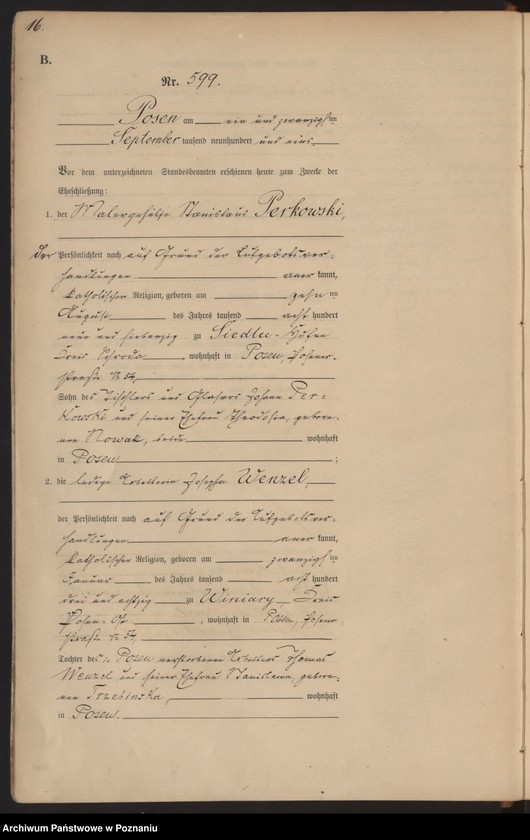 16.
B.
Nr. 599.
Posen am ein und zwanzigsten
September tausend neunhundert und eins
Vor dem unterzeichneten Standesbeamten erschienen heute zum Zwecke der
Eheschließung:
1. der Malergehilfe Stanislaus Perkowski,
der Persönlichkeit nach auf Grund der Aufgebotsver-
handlungen anerkannt,
katholischer Religion, geboren am zehnten
August des Jahres tausend acht hundert
neun und siebenzig zu Siedlec-Hufen
Kreis Schroda, wohnhaft in Posen,
straße № 54,
Sohn des Tischlers und Glasers Johann Per-
kowski und seiner Ehefrau Theodosia, gebore-
nen Nowak, beide wohnhaft
in Posen;
2. die ledige Arbeiterin Josepha Wenzel,
der Persönlichkeit nach auf Grund der Aufgebotsver-
handlungen anerkannt,
katholischer Religion, geboren am zwanzigsten
Januar des Jahres tausend acht hundert
drei und achtzig zu Winiary, Kreis
Posen-Ost, wohnhaft in Posen,
straße № 54,
Tochter des in Posen verstorbenen Arbeiters Thomas
Wenzel und seiner Ehefrau Stanislawa, gebore-
nen Trzebinska, wohnhaft
in Posen.
Archiwum Państwowe w Poznaniu